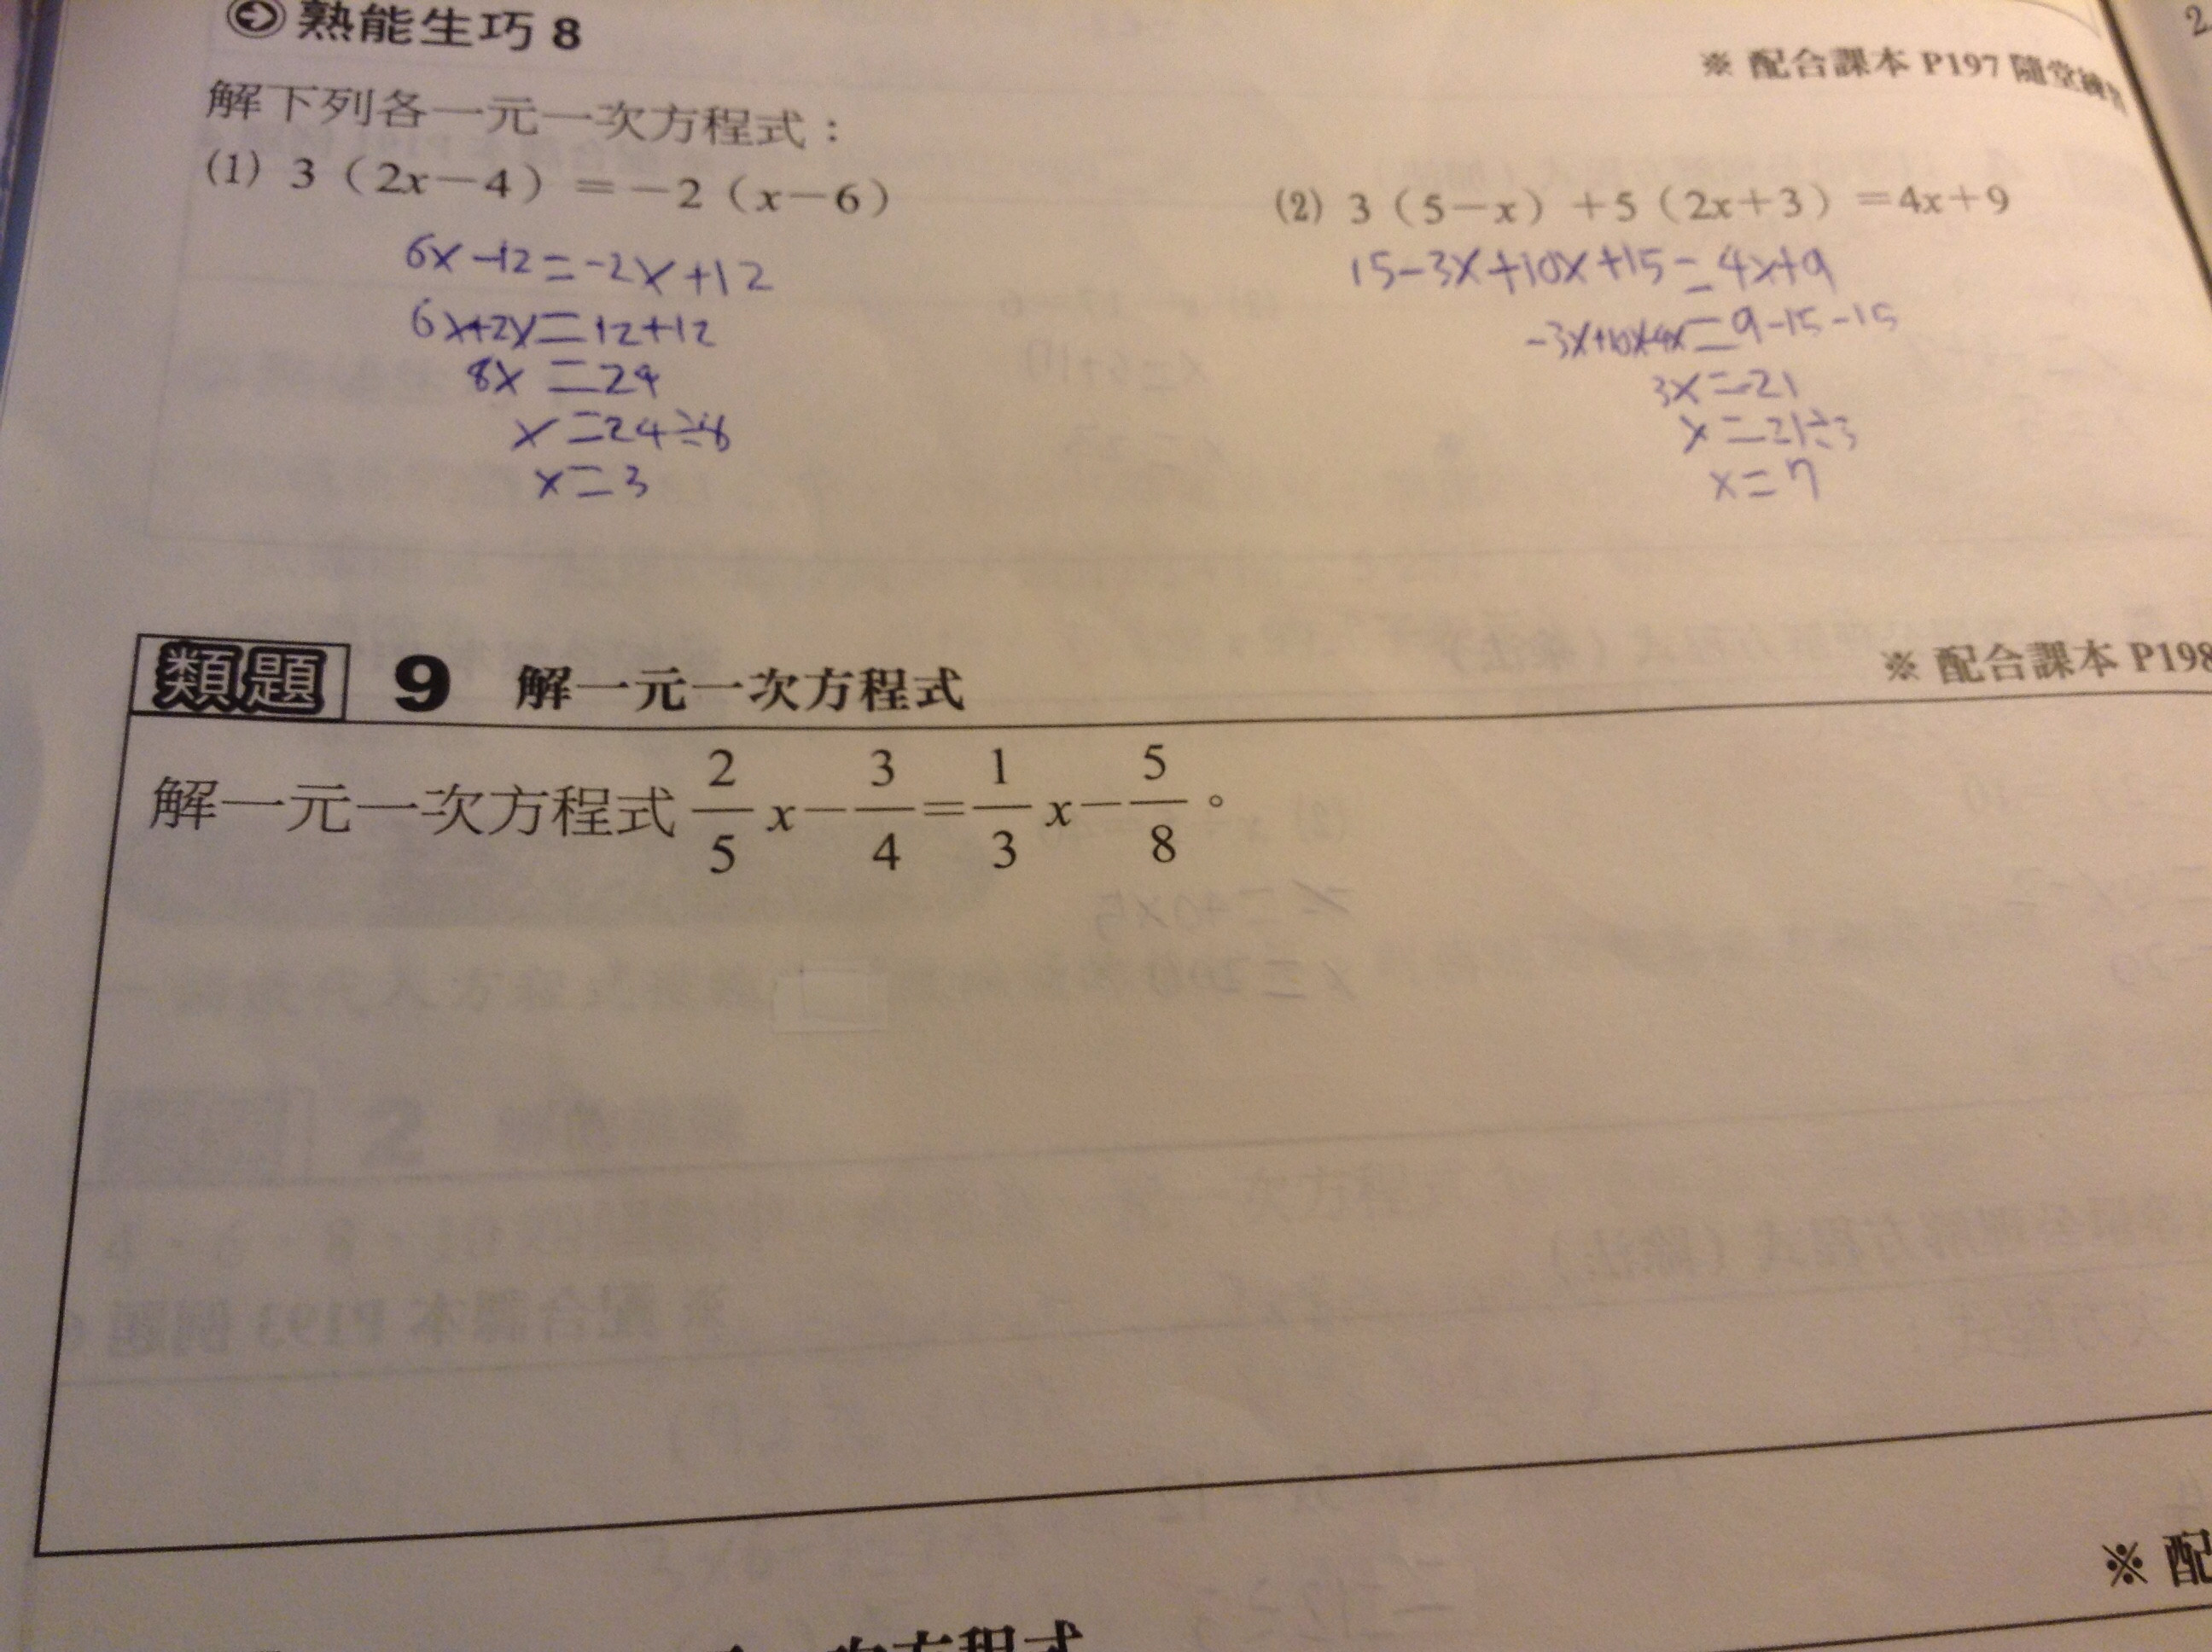 熟能生巧 8
※ 配合課本 P197 隨堂練習
解下列各一元一次方程式：
(1) 3（2x－4）＝－2（x－6）
6x－12＝－2x＋12
6x+2x＝12+12
8x＝24
x＝24÷8
x＝3
(2) 3（5－x）＋5（2x＋3）＝4x＋9
15－3x+10x+15＝4x+9
-3x+10x-4x＝9-15-15
3x＝21
x＝21÷3
x＝7
類題 9 解一元一次方程式
※ 配合課本 P198
解一元一次方程式 2/5 x－3/4＝1/3 x－5/8。
※ 配
元一次方程式